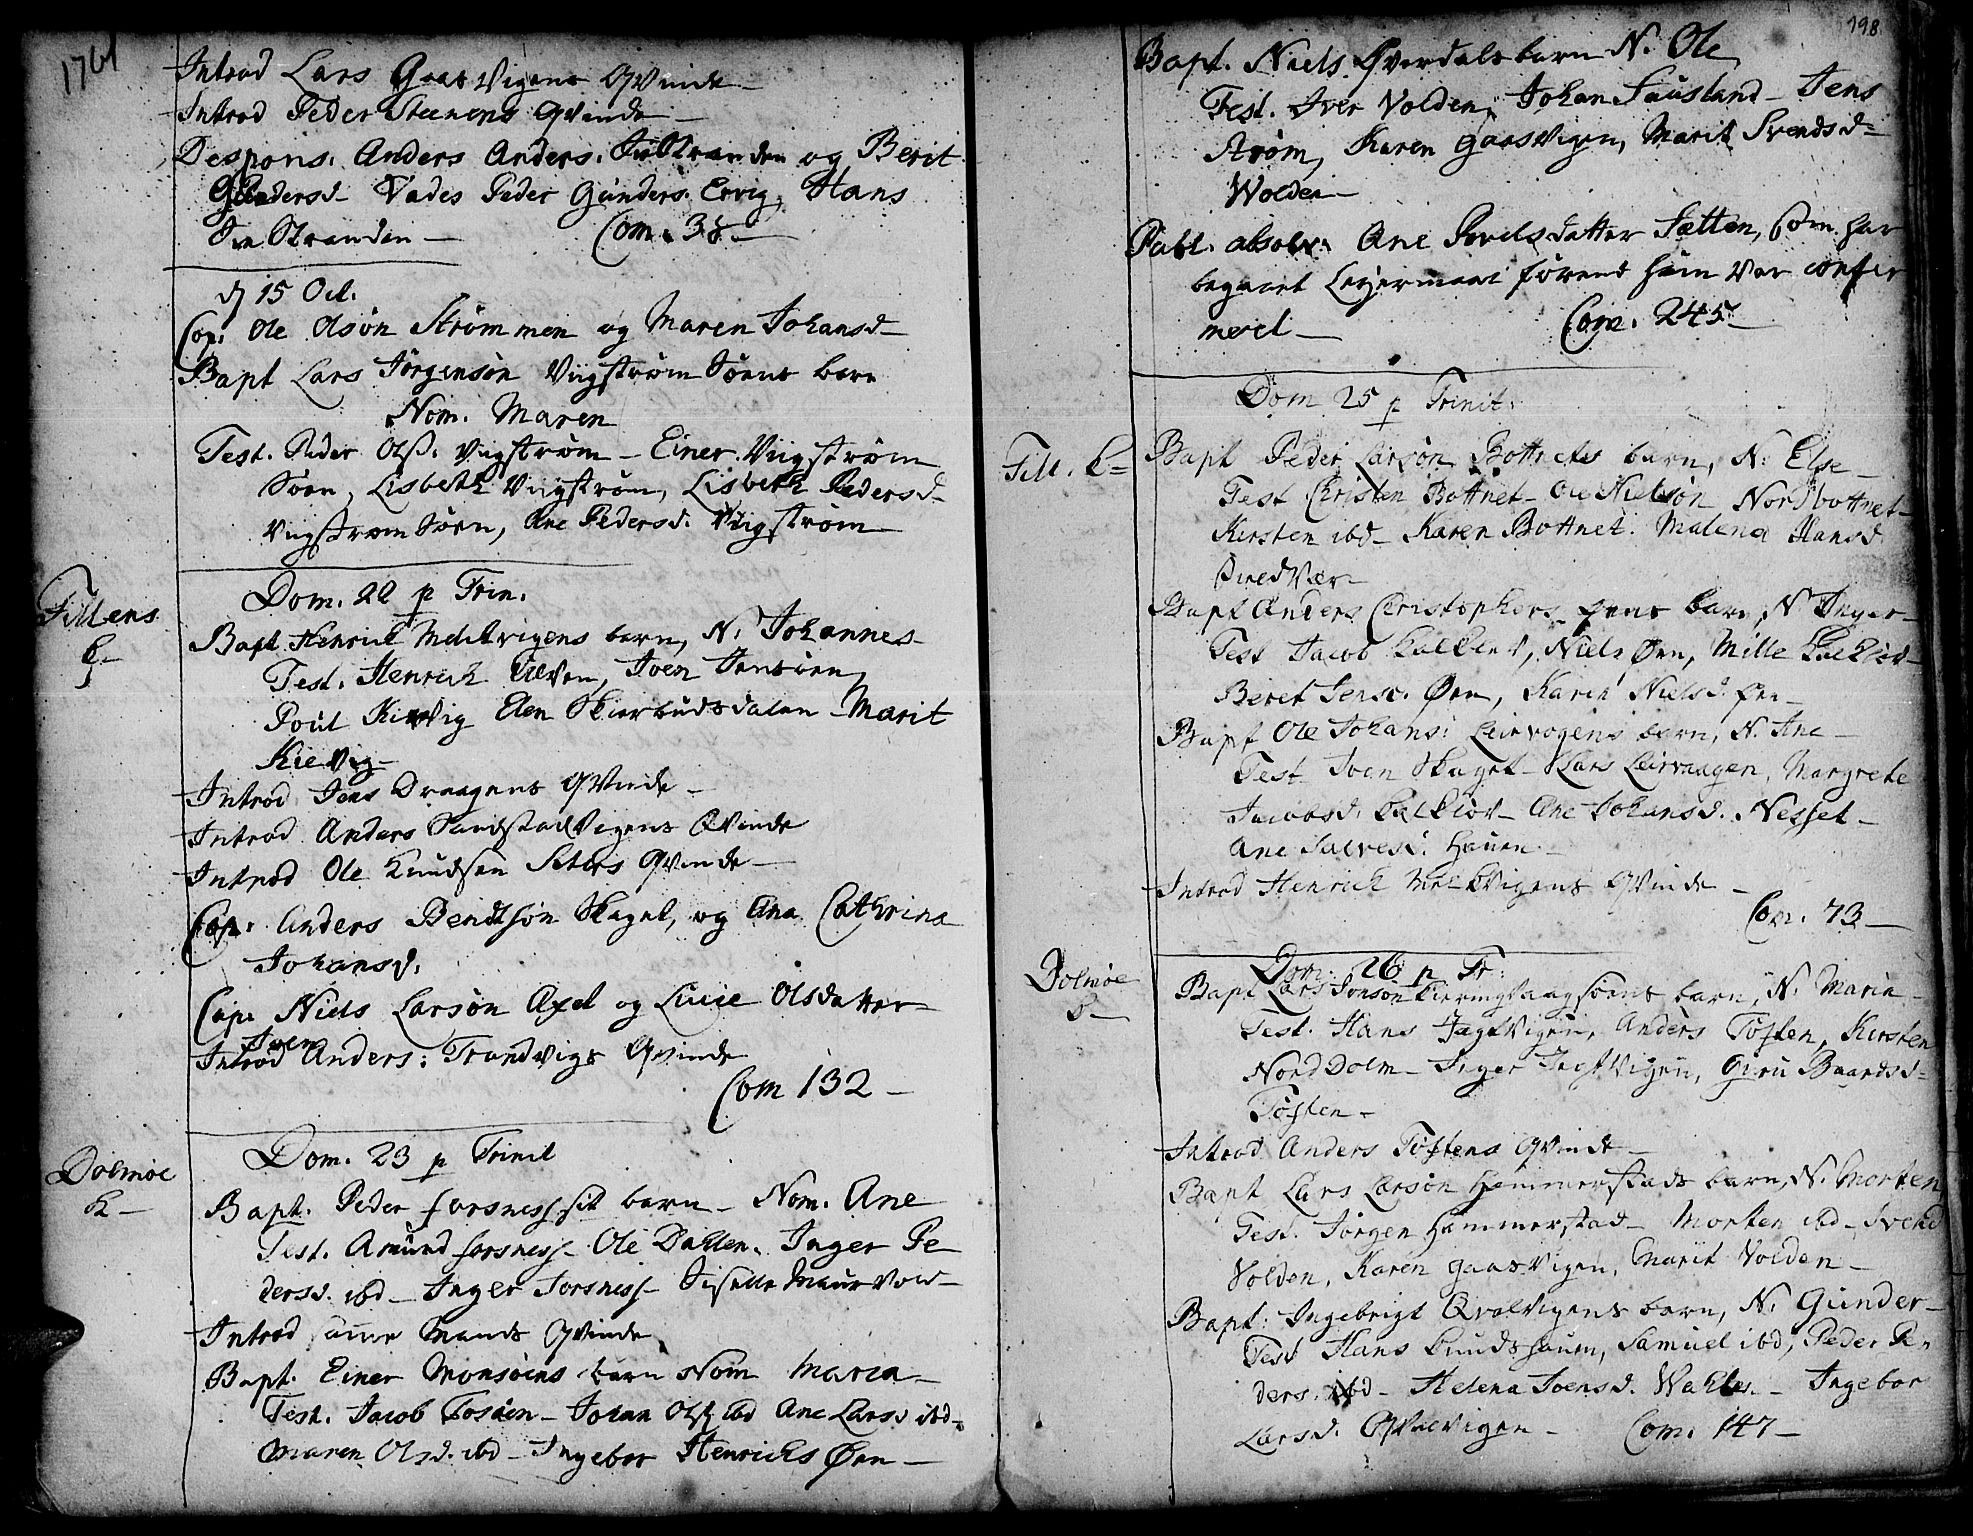 1761
Introd Lars Gaas Vigens Qvinde
Introd Peder Steenens Qvinde
Despons. Anders Anders. Julstranden og Berit
Gundersd. Vades Peder Gunders. Ervig, Hans
Stranden Com. 38
d 15 Oct.
Cop. Ole Olsøn Strømmen og Maren Johansd
Bapt Lars Jørgensøn Vugstrøm Søens barn
Nom. Maren
Test. Peder Olss. Vugstrøm - Einer Vugstrøm
Søen, Lisbeth Vugstrøm, Lisbeth Pedersd
Vugstrøm Søen, Ane Pedersd. Vugstrøm
Fillens
K
Dom. 22 p Trin.
Bapt. Henrich Melchvigens barn, N. Johannes
Test. Henrich Elven, Joen Jensøen
Poul Kievig Elen Skierbudsdalen - Marit
Kievig
Introd Jens Draagens Qvinde
Introd Anders Sandstadvigens Qvinde
Introd Ole Knudsen Seters Qvinde
Cop. Anders Bendtsøn Skaget, og Ana Cathrina
Johansd.
Cop. Niels Larsøn Axel og Lucie Olsdatter
Introd Joen Anders: Trandvigs Qvinde
Com 132
Dolmøe
K
Dom. 23 p Trinit
Bapt. Peder Forsness sit barn - Nom. Ane
Test. Amund Forsness - Ole Dallen. Inger Pe
dersd. ibd - Inger Forsness - Siselle
Introd Mands Qvinde
Bapt. Einer Monsøens barn Nom Maria
Test. Jacob - Johan Olss ibd Ane Larsd ibd
Maren Olsd. ibd - Ingebor Henrichs Øen
198
Bapt. Niels Øverdals barn N. Ole
Test. Iver Volden, Johan Fausland - Jens
Strøm, Karen Gaasvigen, Marit Svendsd
Wolden
Publ. absolv. Ane Povelsdatter Setten, som har
begaaet Leyermaal førend hun var confir
meret Com. 245
Dom 25 p Trinit.
Fill. K
Bapt Peder Larsøn Bottnets barn, N. Else
Test Christen Bottnet - Ole Nielsøn Nordbottnet
Kirsten ibd - Karen Bottnet. Malena Hansd
Bapt Anders Christophers. Øens barn, N Inger
Test Jacob, Niels Øen, Mille
Beret Jensd. Øen, Karen Nielsd. Øen
Bapt Ole Johans: Leirvogens barn, N. Ane
Test Joen Skaget - Lars Leirvaagen, Margrete
Jacobsd. - Ane Johansd. Nesset
Ane Halvesd. Hauen
Introd Henrich Melckvigens Qvinde
Com. 73
Dolmøe
K
Dom. 26 p Tr:
Bapt Lars Jonsøn Kierringvaagsøens barn, N. Maria
Test. Hans Jegtvigen, Anders Tøften, Kirsten
Nord Dolm - Inger Jegtvigen, Guru Baardsd
Tøften
Introd Anders Tøftens Qvinde
Bapt Lars Larsøn Hammerstads barn, N. Morten
Test. Jørgen Hammerstad - Morten ibd - Svend
Volden, Karen Gaasvigen, Marit Volden
Bapt: Ingebrigt Qvalvigens barn, N. Gunder
Test Hans Kuudshauen, Samuel ibd, Peder Pe
ders. ibd - Helena Joensd. - Ingebor
Larsd. Qvalvigen Com. 147